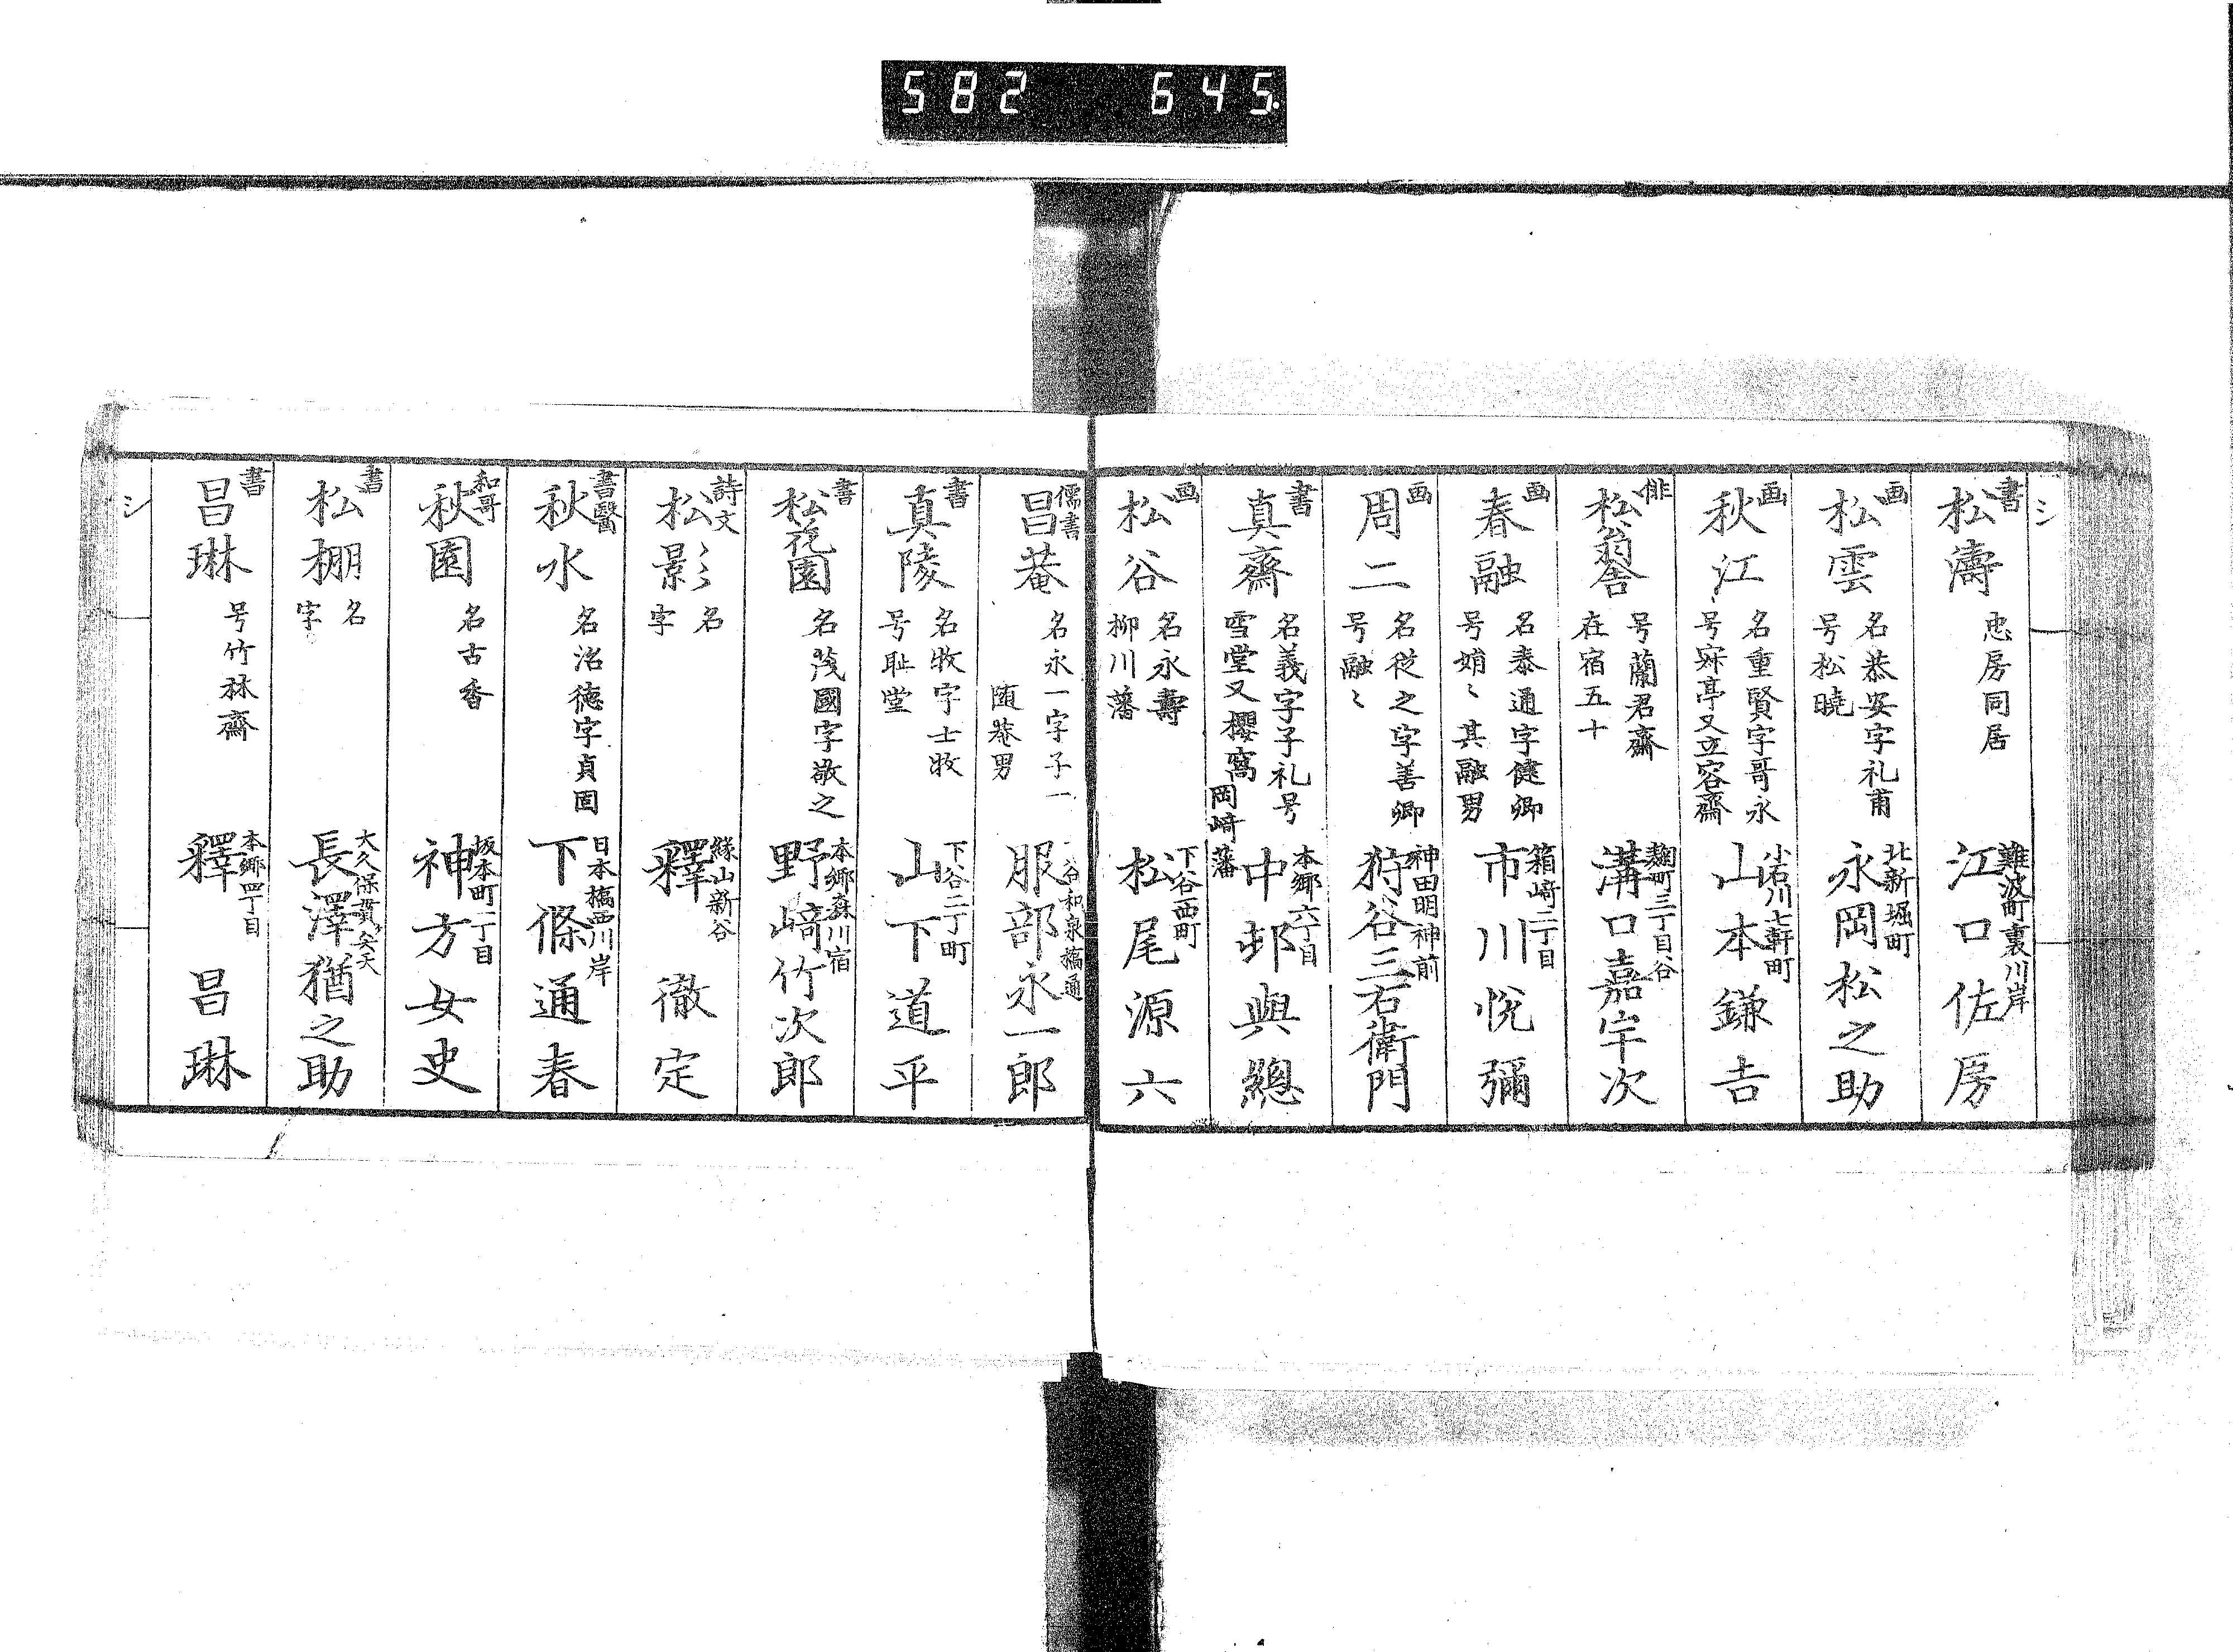 582 645.
シ
書
松濤
忠房同居
難波町裏川岸
江口佐房
画
松雲
名恭安字礼甫
号松曉
北新堀町
永岡松之助
画
秋江
名重賢字哥永
号宷亭又立容齋
小石川七軒町
山本鎌吉
俳
松翁舎
号蘭君齋
在宿五十
麹町三丁目谷
溝口嘉宇次
画
春融
名泰通字健卿
号娋〻其融男
箱﨑二丁目
市川悦彌
画
周二
名従之字善卿
号融〻
神田明神前
狩谷三右衛門
書
真齋
名義字子礼号
雪堂又櫻窩
岡﨑藩
本郷六丁目
中邨與總
画
松谷
名永壽
柳川藩
下谷西町
松尾源六
儒書
昌菴
名永一字子一
随菴男
谷和泉橋通
服部永一郎
書
真陵
名牧字士牧
号耻堂
下谷二丁町
山下道平
書
松花園
名茂國字敬之
本郷森川宿
野﨑竹次郎
詩文
松影
名
字
緑山新谷
釋徹定
書醫
秋水
名洺徳字貞固
日本橋西川岸
下條通春
和哥
秋園
名古香
坂本町一丁目
神方女史
書
松棚
名
字
大久保貫安天
長澤猶之助
書
昌琳
号竹林齋
本郷四丁目
釋昌琳
シ